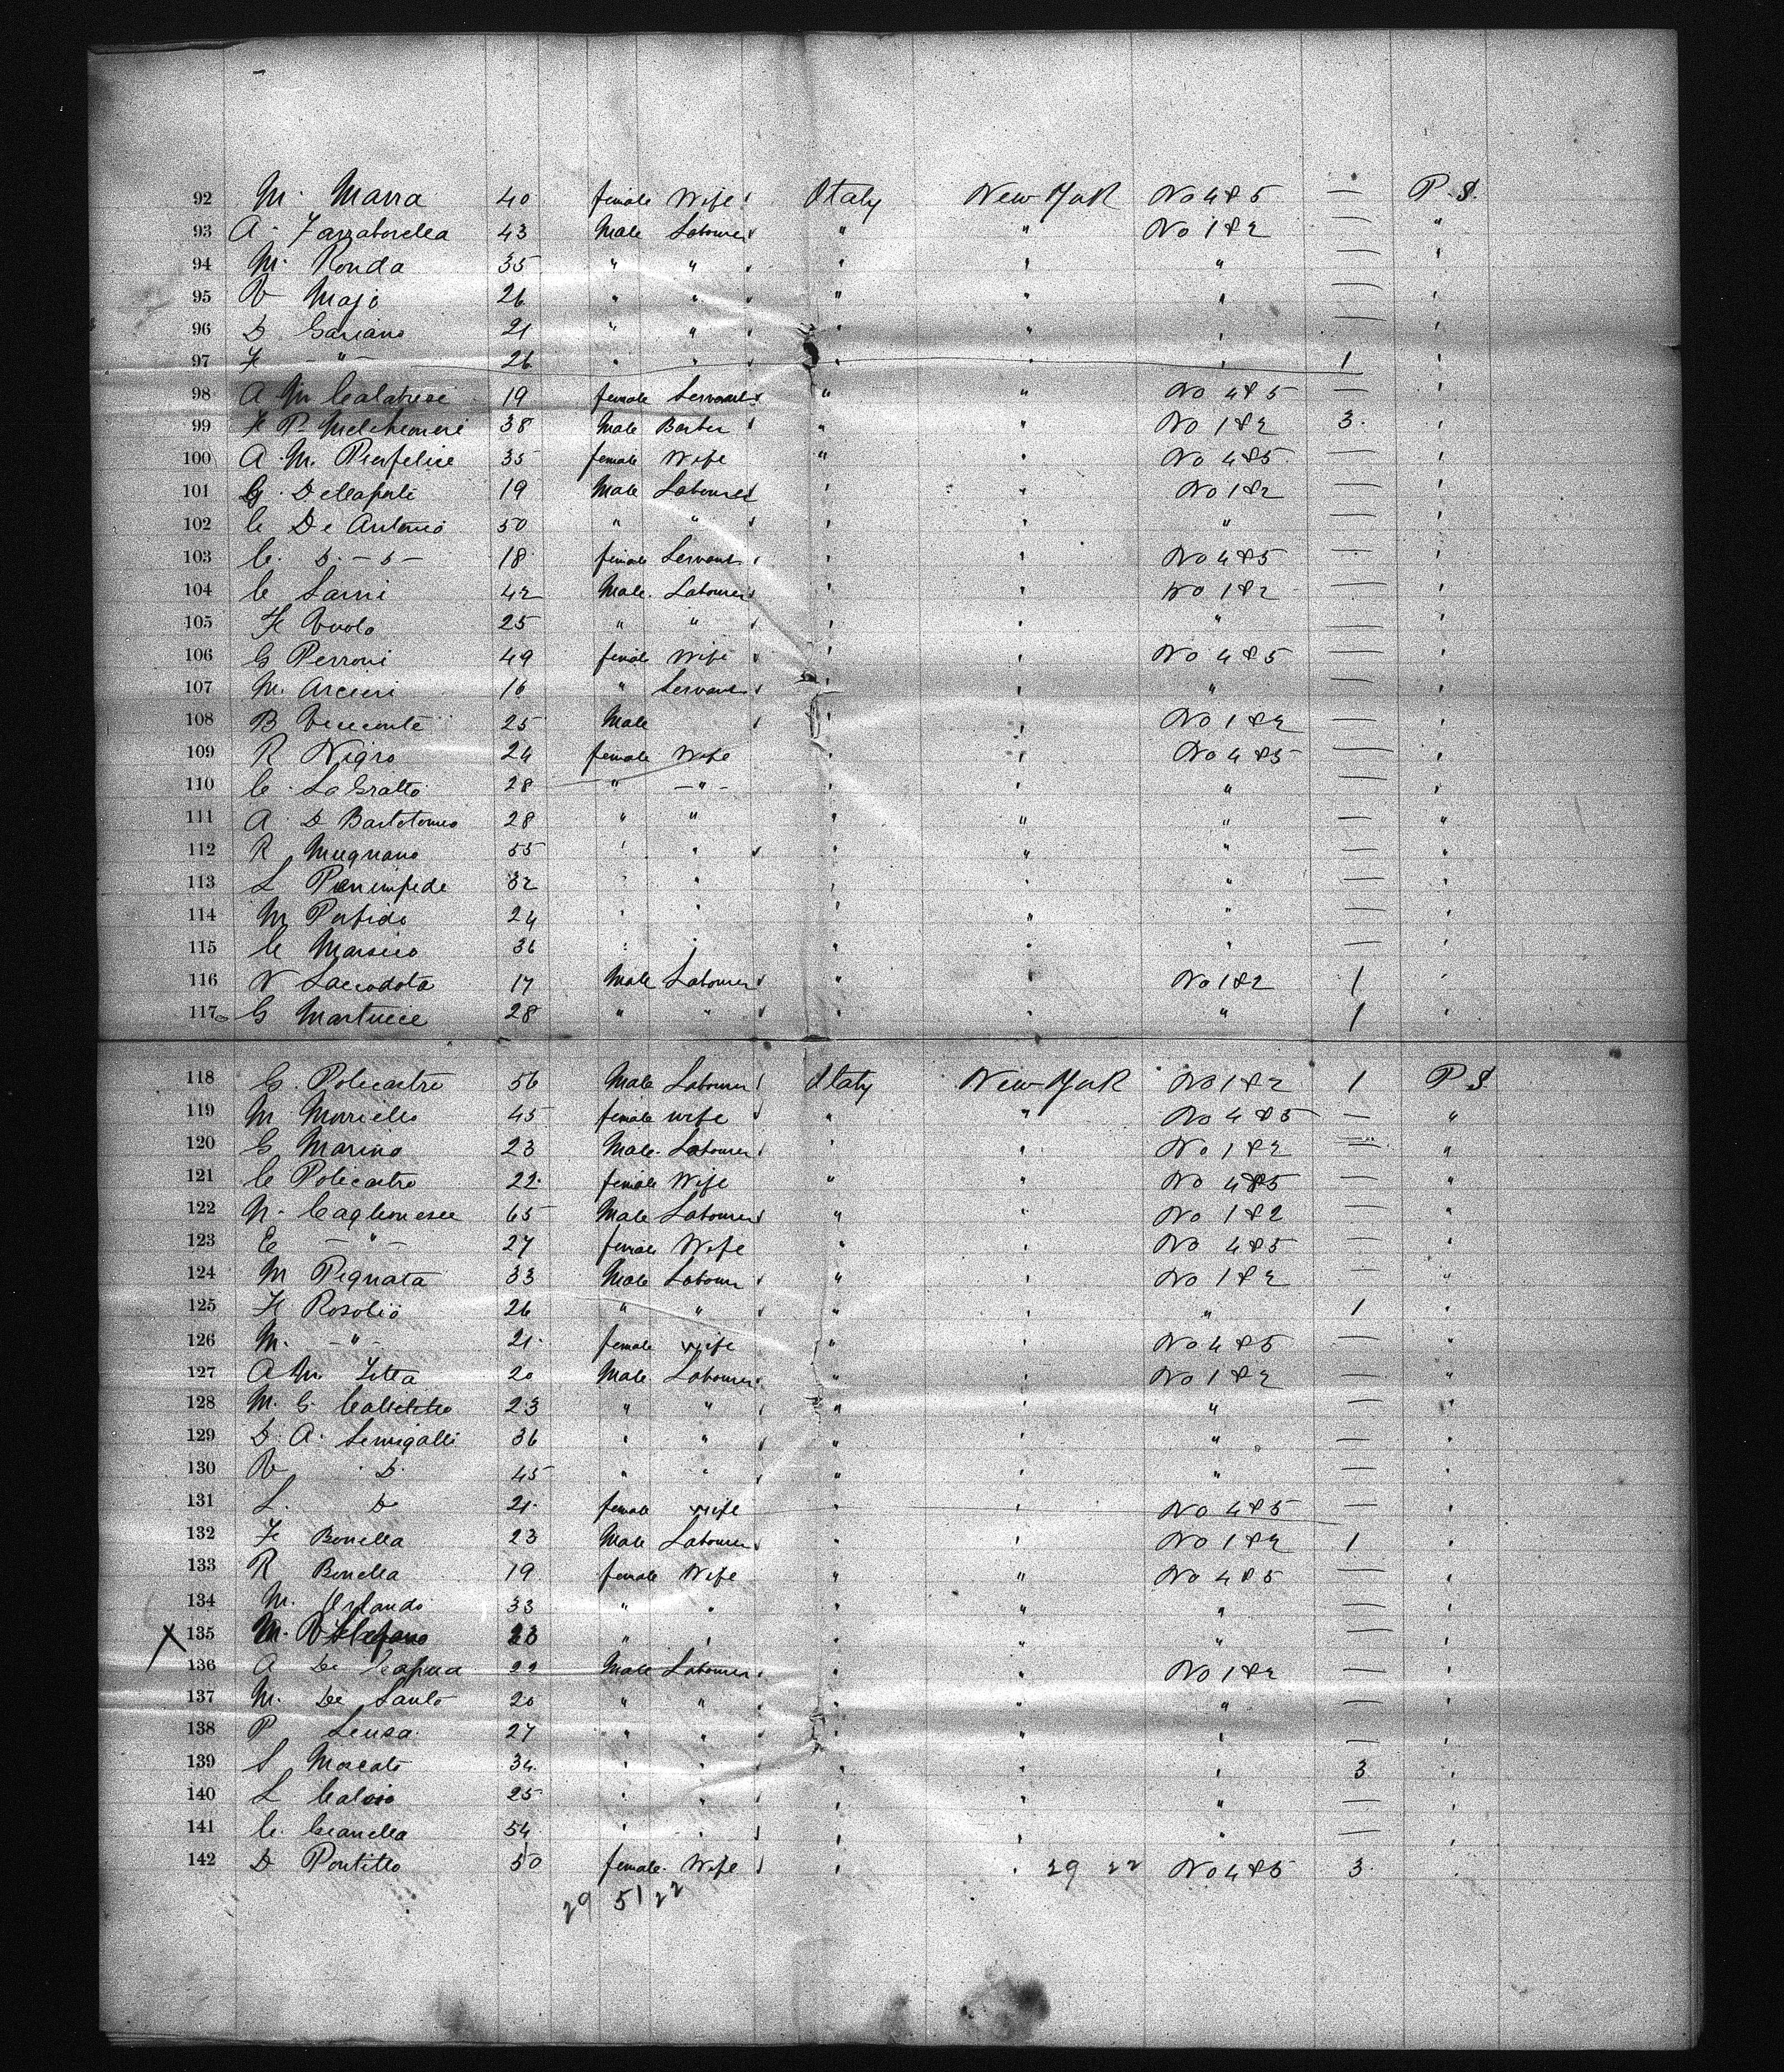 92 M. Marra 40 female Wife Italy New York No 4 & 5 — P. S.
93 A. 43 Male Labourer " " No 1 & 2 — "
94 M. Ronda 35 " " " " " — "
95 V Majo 26 " " " " " — "
96 D Gariano 21 " " " " " — "
97 F — " — 26 " " " " " 1 "
98 A M Calabrese 19 female Servant " " No 4 & 5 — "
99 F P 38 Male Barber " " No 1 & 2 3. "
100 A. M. 35 female Wife " " No 4 & 5 — "
101 G. 19 Male Labourer " " No 1 & 2 — "
102 C De Antonio 50 " " " " " — "
103 C. D. — D — 18 female Servant " " No 4 & 5 — "
104 C Sarni 42 Male Labourer " " No 1 & 2 — "
105 F Vuolo 25 " " " " " — "
106 G Perroni 49 female Wife " " No 4 & 5 — "
107 M. Arcieri 16 " Servant " " " — "
108 B 25 Male " " No 1 & 2 — "
109 R Nigro 24 female Wife " " No 4 & 5 — "
110 C. La Gratto 28 " — " — " " " — "
111 A. D Bartolomeo 28 " " " " " — "
112 R Mugnano 55 " " " " " — "
113 L 32 " " " " " — "
114 M Perfido 24 " " " " " — "
115 C Marsico 36 " " " " " — "
116 V Sacrodota 17 Male Labourer " " No 1 & 2 1 "
117 G Martucci 28 " " " " " 1 "
118 G. Policastro 56 Male Labourer Italy New York No 1 & 2 1 P S
119 M. Moriello 45 female wife " " No 4 & 5 — "
120 G Marino 23 Male Labourer " " No 1 & 2 — "
121 C Policastro 22 female Wife " " No 4 & 5 — "
122 N. Caglionesee 65 Male Labourer " " No 1 & 2 — "
123 E — " — 27 female Wife " " No 4 & 5 — "
124 M Pignata 33 Male Labour " " No 1 & 2 — "
125 F Rosolio 26 " " " " " 1 "
126 M. — " — 21 female wife " " No 4 & 5 — "
127 A M. 20 Male Labourer " " No 1 & 2 — "
128 M. G. 23 " " " " " — "
129 D. A. Senigalli 36 " " " " " — "
130 V D. 45 " " " " " — "
131 L. D 21 female wife " " No 4 & 5 — "
132 F Bonella 23 Male Labourer " " No 1 & 2 1 "
133 R Bonella 19 female Wife " " No 4 & 5 — "
134 M. Orlando 33 " " " " " — "
X 135 M. 23 " " " " " — "
136 A De Capua 22 Male Labourer " " No 1 & 2 — "
137 M. De Santo 20 " " " " " — "
138 P Sensa 27 " " " " " — "
139 S Moscato 34 " " " " " 3 "
140 L 25 " " " " " — "
141 C. Cianella 54 " " " " " — "
142 D Pontillo 50 female Wife " " 29 22 No 4 & 5 3 "
29 51 22